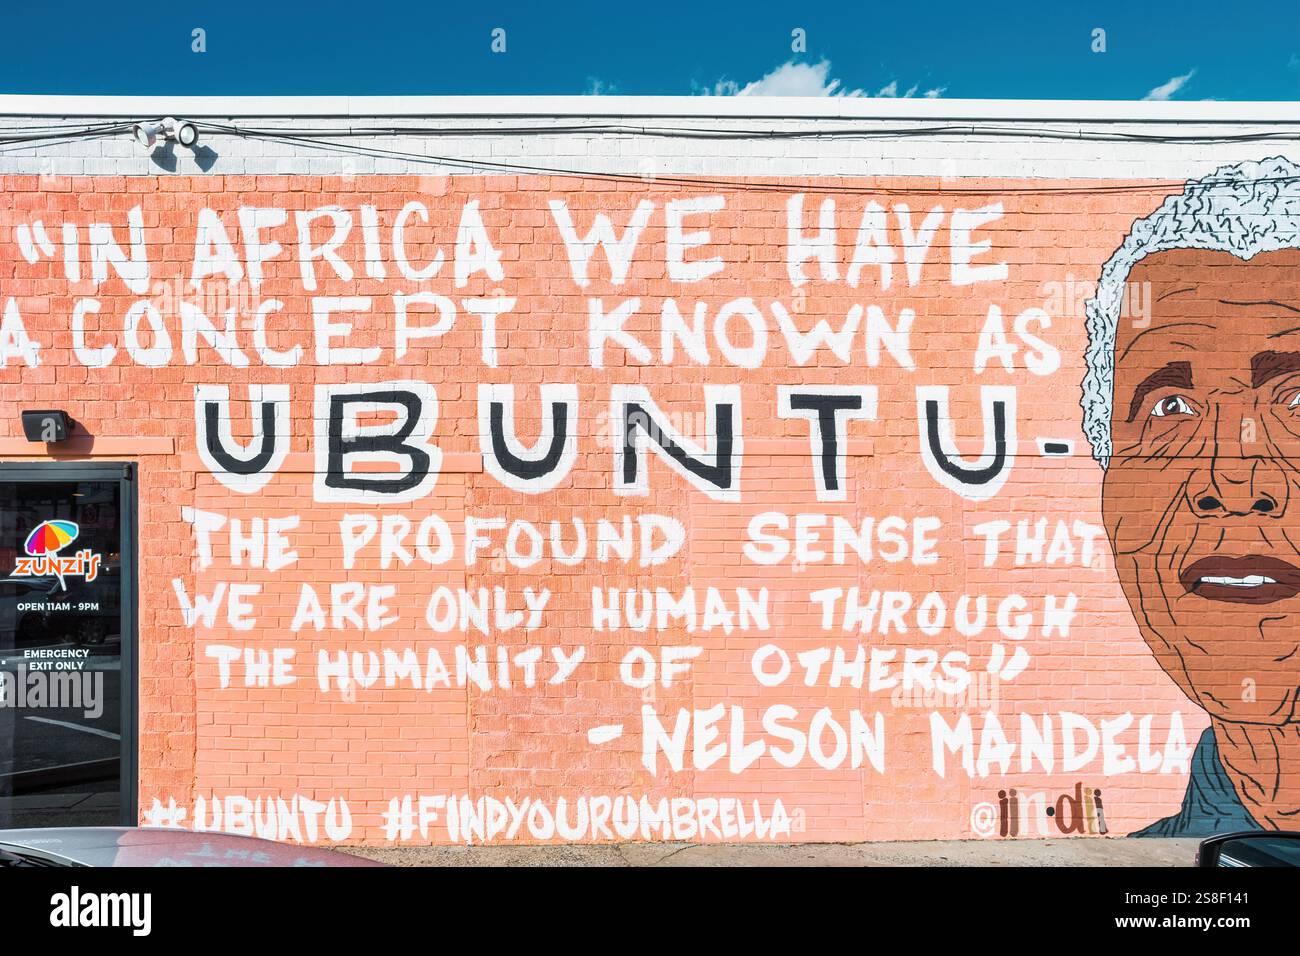 "IN AFRICA WE HAVE
A CONCEPT KNOWN AS
UBUNTU-
THE PROFOUND SENSE THAT
WE ARE ONLY HUMAN THROUGH
THE HUMANITY OF OTHERS"
- NELSON MANDELA
#UBUNTU #FINDYOURUMBRELLA
@iin.dii
ZUNZI'S
OPEN 11AM - 9PM
EMERGENCY
EXIT ONLY
a a a a
a a a
a a a a
alamy
Image ID: 2S8F141
www.alamy.com